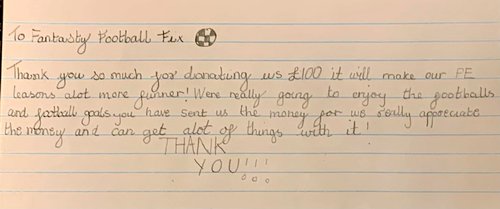 To Fantasty Football Fix
Thank you so much for donating us £100 it will make our PE
leasons alot more funner! Were really going to enjoy the footballs
and football goals you have sent us the money for we really appreciate
the money and can get alot of things with it!
THANK
YOU!!!